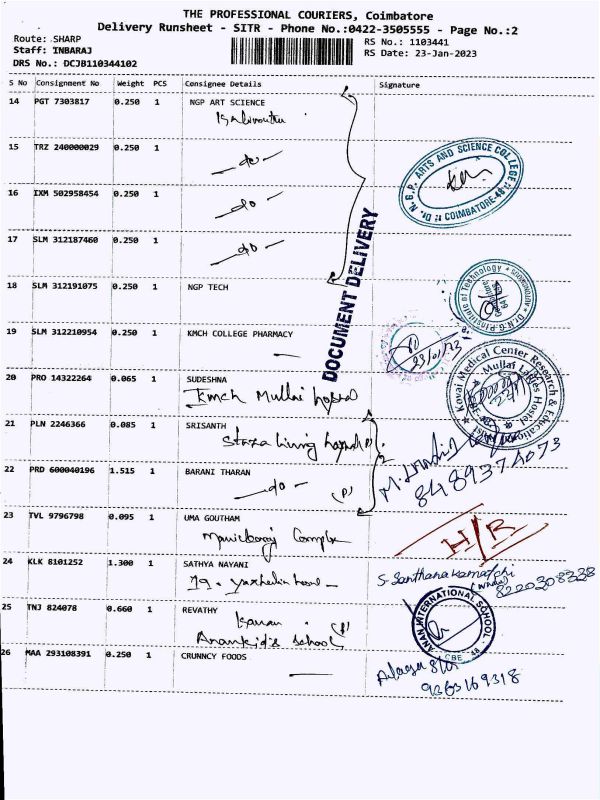 THE PROFESSIONAL COURIERS, Coimbatore
Delivery Runsheet - SITR - Phone No.:0422-3505555 - Page No.:2
Route: SHARP
RS No.: 1103441
Staff: INBARAJ
RS Date: 23-Jan-2023
DRS No.: DCJB110344102
S No Consignment No Weight PCS Consignee Details Signature
14 PGT 7303817 0.250 1 NGP ART SCIENCE
15 TRZ 240000029 0.250 1
do
16 IXM 502958454 0.250 1
do
17 SLM 312187460 0.250 1
do
DOCUMENT DELIVERY
Dr. N.G.P. ARTS AND SCIENCE COLLEGE
COIMBATORE-48
18 SLM 312191075 0.250 1 NGP TECH
Dr.N.G.P.Institute of Technology
19 SLM 312210954 0.250 1 KMCH COLLEGE PHARMACY
23/01/23
20 PRO 14322264 0.065 1 SUDESHNA
Kmch Mullai hostel
Kovai Medical Center Research & Educational
Mullai Ladies Hostel
21 PLN 2246366 0.085 1 SRISANTH
Stanza living
22 PRD 600040196 1.515 1 BARANI THARAN
do (P)
8489374073
23 TVL 9796798 0.095 1 UMA GOUTHAM
H/R
24 KLK 8101252 1.300 1 SATHYA NAYANI
19.
S. Santhanakamatchi
8220308328
25 TNJ 824078 0.660 1 REVATHY
school
ANAN INTERNATIONAL SCHOOL
CBE 48
26 MAA 293108391 0.250 1 CRUNNCY FOODS
9363169318